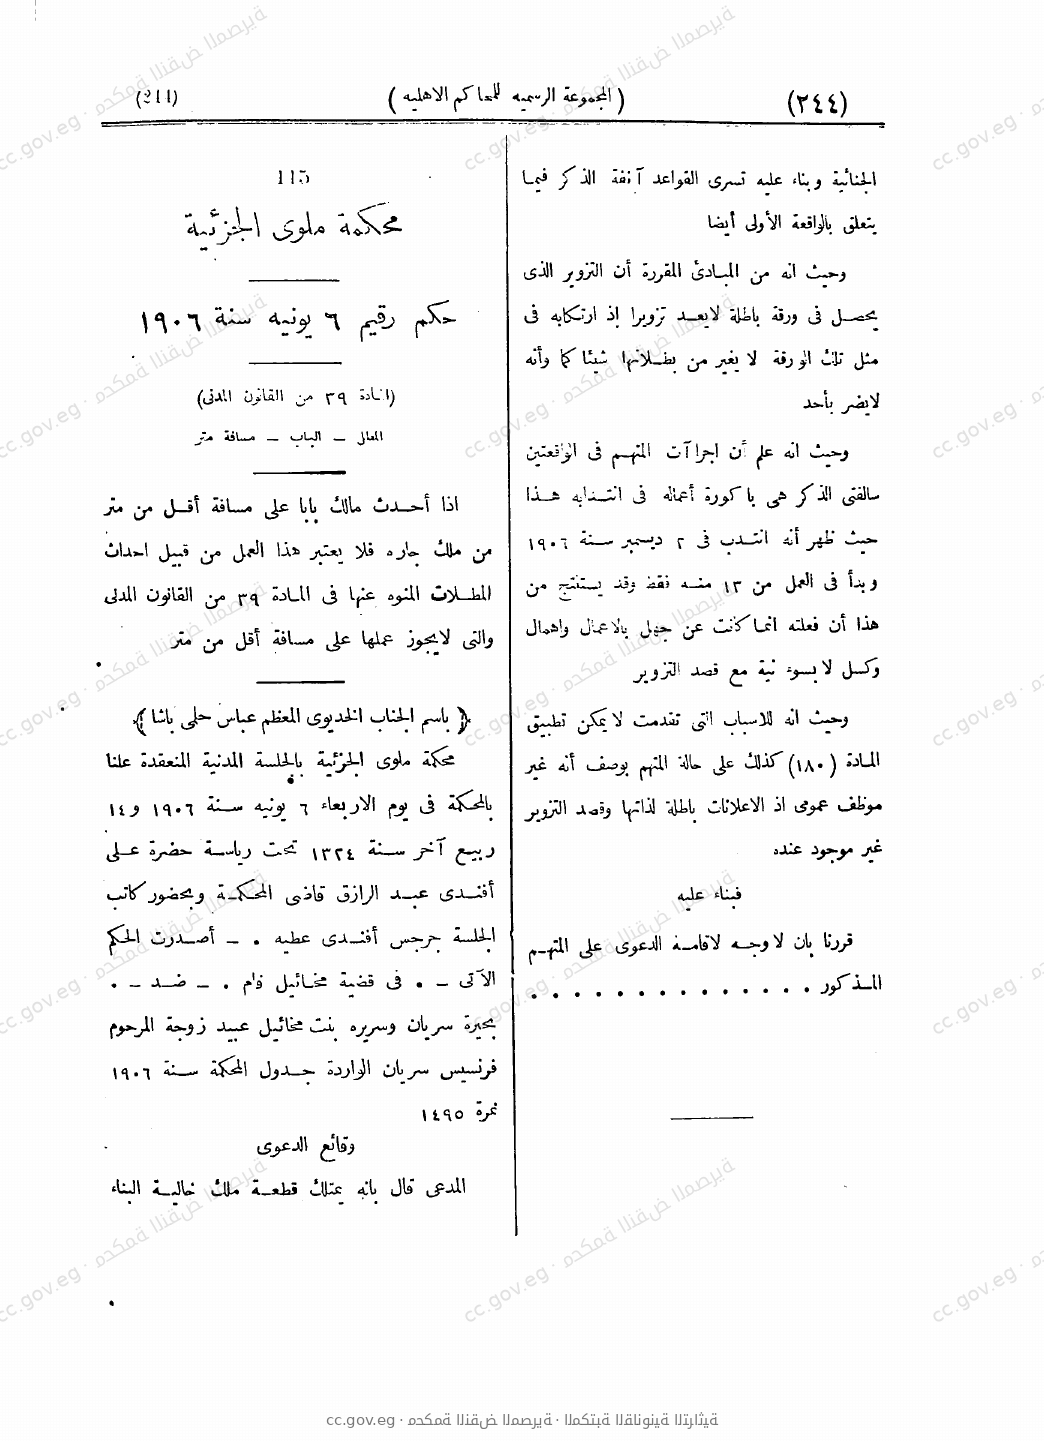 (٢٤٤)
( المجموعة الرسميه للمحاكم الاهليه )
(244)
الجنائية وبناء عليه تسرى القواعد آنفة الذكر فيما
يتعلق بالواقعة الأولى أيضا
وحيث انه من المبادئ المقررة أن التزوير الذى
يحصل فى ورقة باطلة لايعد تزويرا إذ ارتكابه فى
مثل تلك الورقة لا يغير من بطلانها شيئا كما وأنه
لايضر بأحد
وحيث انه علم أن اجراآت المتهم فى الواقعتين
سالفتى الذكر هى باكورة أعماله فى انتدابه هذا
حيث ظهر أنه انتدب فى ٢ ديسمبر سنة ١٩٠٦
وبدأ فى العمل من ١٣ منه فقط وقد يستنتج من
هذا أن فعلته انما كانت عن جهل بالاعمال واهمال
وكسل لا بسوء نية مع قصد التزوير
وحيث انه للاسباب التى تقدمت لا يمكن تطبيق
المادة (١٨٠) كذلك على حالة المتهم بوصف أنه غير
موظف عمومى اذ الاعلانات باطلة لذاتها وقصد التزوير
غير موجود عنده
فبناء عليه
قررنا بان لا وجه لاقامة الدعوى على المتهم
المذكور . . . . . . . . . . . . . .
115
محكمة ملوى الجزئية
حكم رقيم ٦ يونيه سنة ١٩٠٦
(المادة ٣٩ من القانون المدنى)
المطل – الباب – مسافة متر
اذا أحدث مالك بابا على مسافة أقل من متر
من ملك جاره فلا يعتبر هذا العمل من قبيل احداث
المطلات المنوه عنها فى المادة ٣٩ من القانون المدنى
والتى لايجوز عملها على مسافة أقل من متر
﴿ باسم الجناب الخديوى المعظم عباس حلمى باشا ﴾
محكمة ملوى الجزئية بالجلسة المدنية المنعقدة علنا
بالمحكمة فى يوم الاربعاء ٦ يونيه سنة ١٩٠٦ و ١٤
ربيع آخر سنة ١٣٢٤ تحت رياسة حضرة على
أفندى عبد الرازق قاضى المحكمة وبحضور كاتب
الجلسة جرجس أفندى عطيه . – أصدرت الحكم
الآتى – . فى قضية مخائيل فام . – ضد – .
بحيرة سريان وسريره بنت مخائيل عبيد زوجة المرحوم
فرنسيس سريان الواردة جدول المحكمة سنة ١٩٠٦
نمرة ١٤٩٥
وقائع الدعوى
المدعى قال بانه يمتلك قطعة ملك خالية البناء
cc.gov.eg · محكمة النقض المصرية · المكتبة القانونية التراثية